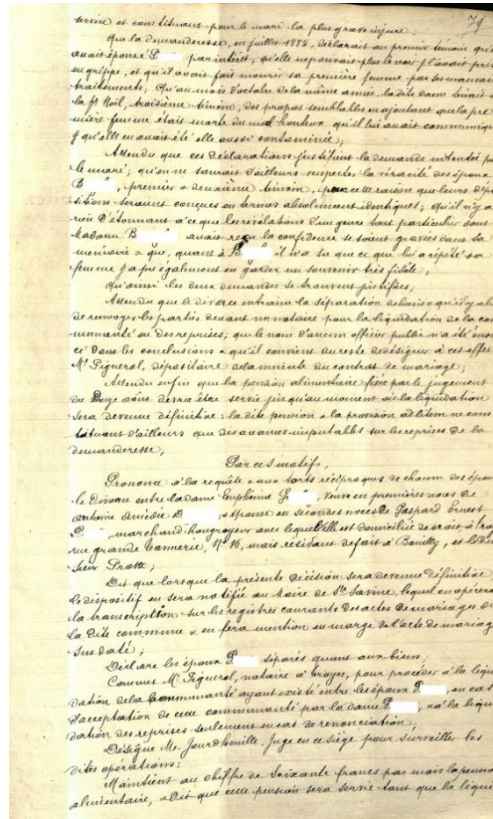 79
servie et constituant pour le mari la plus grave injure;
Que la demanderesse, en juillet 1885, déclarait au premier témoin qu'
avait épousé P par intérêt, qu'elle ne pouvait plus le voir, l'avait pris
en grippe, et qu'il avait fait mourir sa première femme par ses mauvais
traitements; Qu'au mois d'octobre de la même année, la dite dame tenait
la fe Noël, troisième témoin, des propos semblables en ajoutant que la pre
mière femme était morte du mal honteux qu'il lui avait communiqué
& qu'elle en avait été elle aussi contaminée;
Attendu que ces déclarations justifient la demande intentée p
le mari; qu'on ne saurait d'ailleurs suspecter la véracité des époux
B , premier & deuxième témoin, par cette raison que leurs dépo
sitions seraient conçues en termes absolument identiques; qu'il n'y a
rien d'étonnant à ce que les révélations d'un genre tout particulier dont
Madame B avait reçu la confidence se soient gravées dans sa
mémoire & que, quant à B il n'a su que ce que lui a répété sa
femme & a pu également en garder un souvenir très fidèle;
qu'ainsi les deux demandes se trouvent justifiées;
Attendu que le divorce entraine la séparation de biens & qu'il y a li
de renvoyer les parties devant un notaire pour la liquidation de la com
munauté ou des reprises; que le nom d'aucun officier public n'a été énon
cé dans les conclusions & qu'il convient du reste de désigner à cet effet
Me Figuerol, dépositaire de la minute du contrat de mariage;
Attendu enfin que la pension alimentaire fixée par le jugement
du onze août devra être servie jusqu'au moment où la liquidation
sera devenue définitive: la dite pension & la provision ad litem ne cons
tituant d'ailleurs que des avances imputables sur les reprises de la
demanderesse;
Par ces motifs,
Prononce à la requête & aux torts réciproques de chacun des épou
le Divorce entre la dame Euphémie G , veuve en premières noces de
Antoine Amédée D , épouse en secondes noces de Gaspard Ernest
P , marchand hongroyeur avec lequel elle est domiciliée de droit à Tro
rue grande Tannerie, No 16, mais résidant de fait à Bouilly, et le dit
sieur Pratte;
Dit que lorsque la présente décision sera devenue définitive
le dispositif en sera notifié au Maire de Ste Savine, lequel en opérera
la transcription sur les registres courants des actes de mariages de
la dite commune & en fera mention en marge de l'acte de mariag
sus daté;
Déclare les époux P séparés quant aux biens;
Commet Me Figuerol, notaire à Troyes, pour procéder à la liqui
dation de la Communauté ayant existé entre les époux P en cas
d'acceptation de cette communauté par la dame P , & à la liqui
dation des reprises seulement en cas de renonciation;
Désigne Me. Jourdheuille, Juge en ce siège pour surveiller les
dites opérations;
Maintient au chiffre de Soixante francs par mois la pension
alimentaire, & Dit que cette pension sera servie tant que la liqui